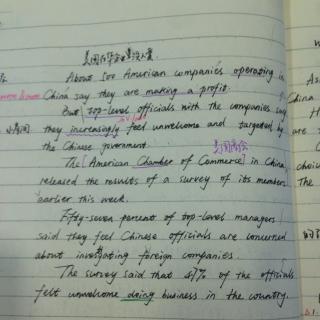 About 500 American companies operating in
China say they are making a profit.
But top-level officials with the companies say
they increasingly feel unwelcome and targeted by
the Chinese government.
美国商会
The [American Chamber of Commerce] in China
released the results of a survey of its members
earlier this week.
Fifty-seven percent of top-level managers
said they feel Chinese officials are concerned
about investigating foreign companies.
The survey said that 47% of the officials
felt unwelcome doing business in the country.